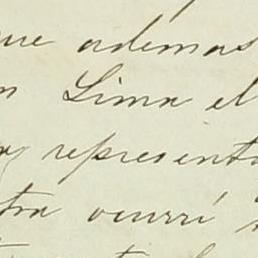 que ademas
Lima el
representa
tra ocurrí